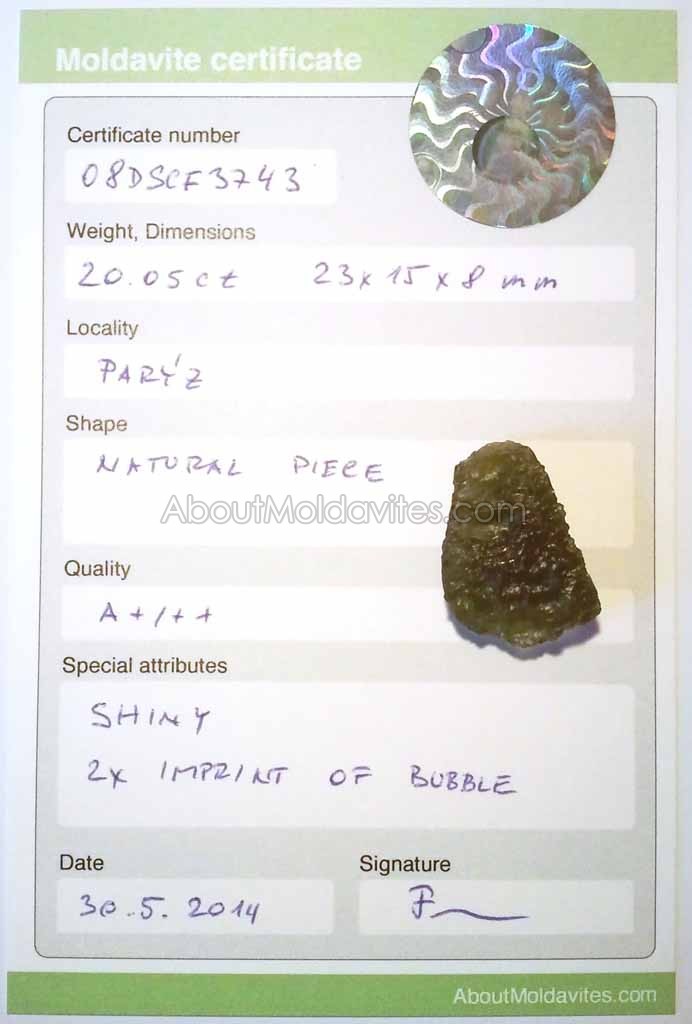 Moldavite certificate
Certificate number
08DSCF3743
Weight, Dimensions
20.05ct 23x15x8 mm
Locality
PARÝZ
Shape
NATURAL PIECE
AboutMoldavites.com
Quality
A+/++
Special attributes
SHINY
2x IMPRINT OF BUBBLE
Date Signature
30.5.2014
AboutMoldavites.com